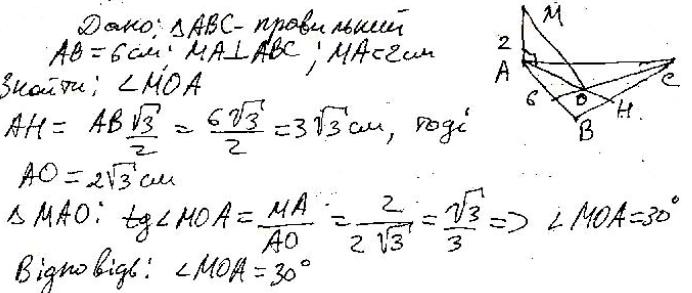 Дано: △ABC - правильний
AB = 6 см; MA⊥ABC; MA = 2 см
Знайти: ∠MOA
AH = AB√3/2 = 6√3/2 = 3√3 см, тоді
AO = 2√3 см
△MAO: tg∠MOA = MA/AO = 2/2√3 = √3/3 => ∠MOA = 30°
Відповідь: ∠MOA = 30°
M
2
A
C
6
O
H
B